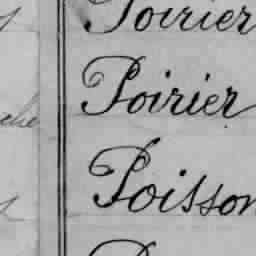 Poirier
Poirier
Poisson